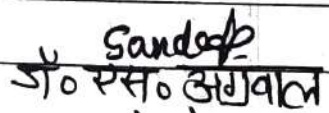 Sandeep
डॉ० एस० अग्रवाल